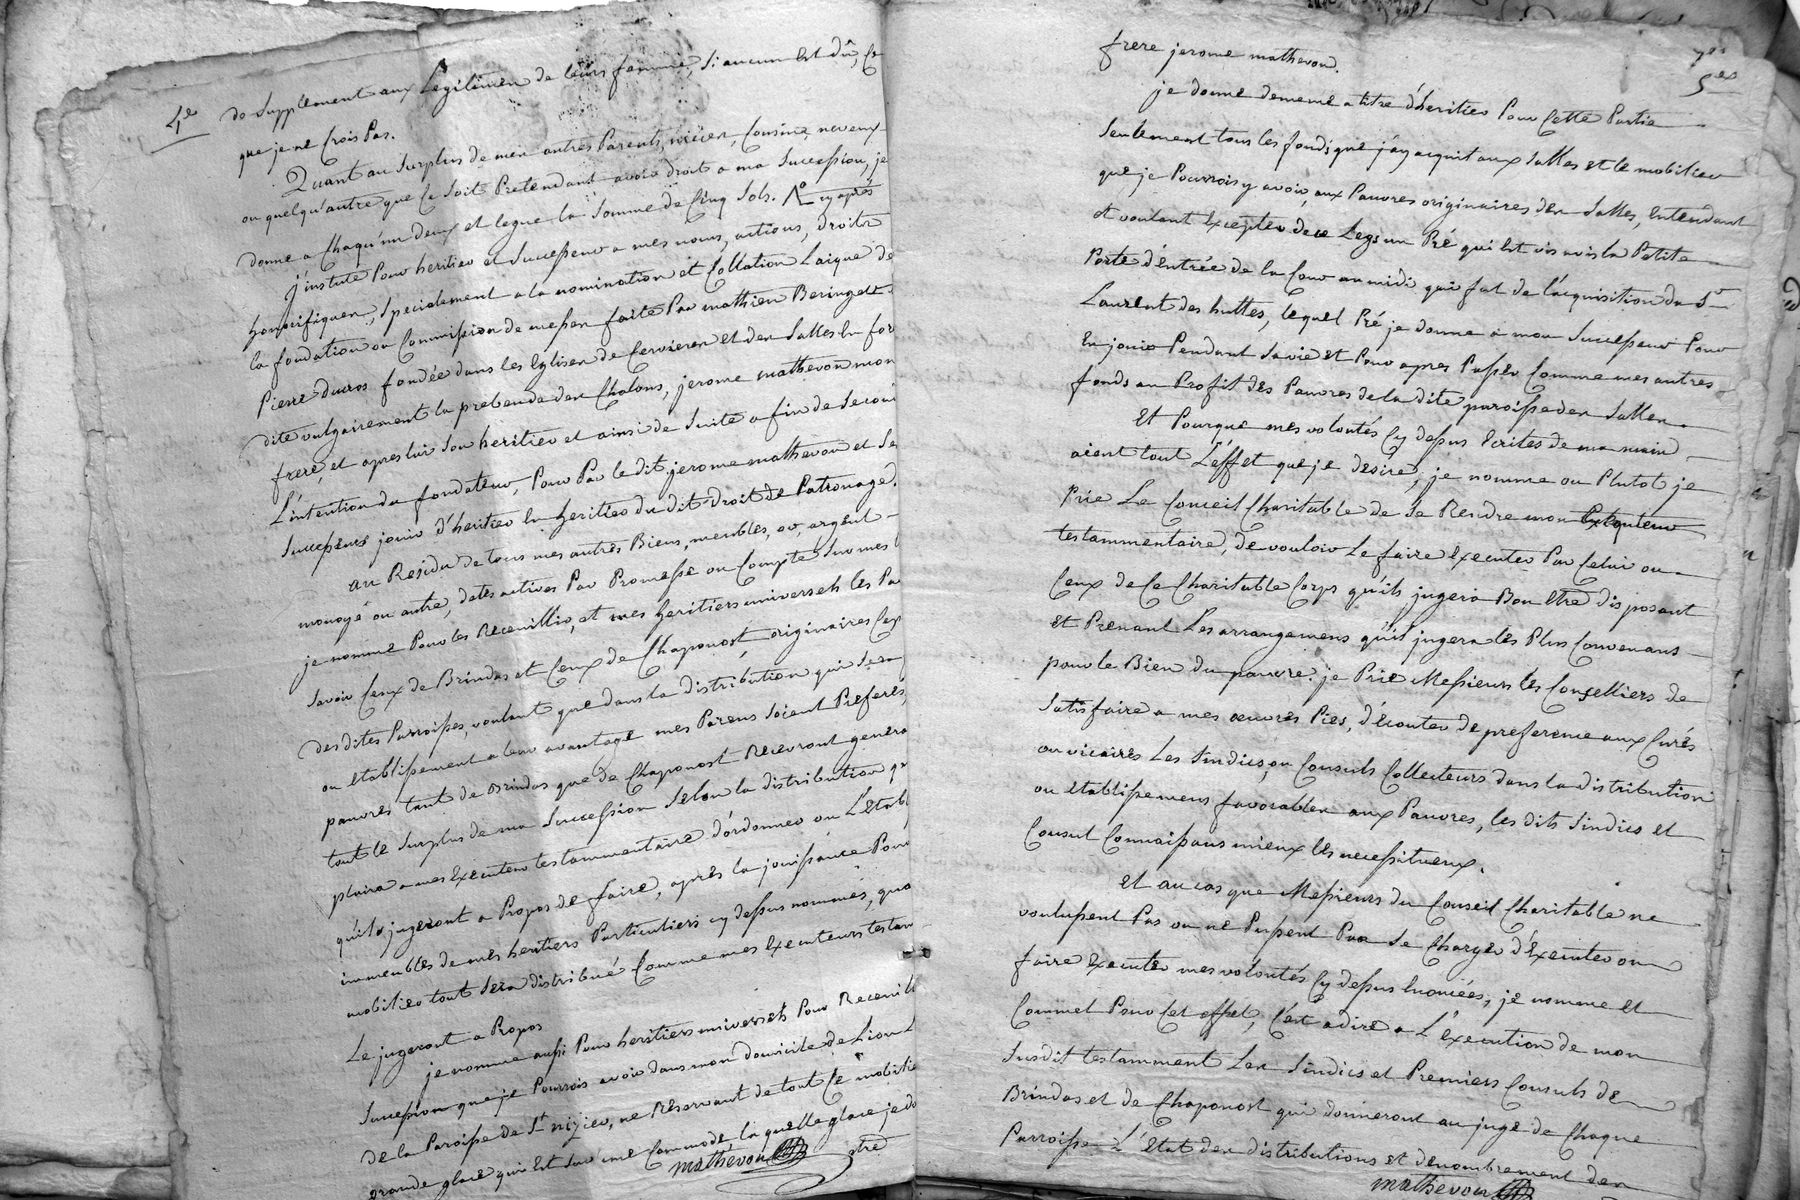 4e
de Supplement aux Legitimes de leurs femmes, Si aucun Est dû, Ce
que je ne Crois Pas.
Quant au Surplus de mes autres Parents, nieces, Cousins, neveux
ou quelqu'autre que Ce Soit Pretendant avoir droit a ma Succession, je
donne a Chaqu'un deux et legue la Somme de Cinq Sols. No cy après
j'institue Pour heritier et Successeur a mes noms, actions, droits
honorifiques, Specialement a la nomination et Collation Laique de
la fondation ou Commission de messes faite Par mathieu Beringer
Pierre ducros fondée dans les Eglises de Cervieres et des Salles En for
dite vulgairement la prebende des Chalons, jerome mathevon mon
frere, et apres lui Son heritier et ainsi de Suite afin de
L'intention du fondateur, Pour Par le dit jerome mathevon et Se
Successeurs jouir d'heritier En heritier du dit droit de Patronage.
au Residu de tous mes autres Biens, meubles, or, argent
monoyé ou autre, dettes actives Par Promesse ou Compte Sur mes
je nomme Pour les Recueillir, et mes heritiers universels les Pa
Savoir Ceux de Brindas et Ceux de Chaponost, originaires
des dites Parroisses, voulant que dans la distribution qui Sera
ou etablissement a leur avantage mes Parens Soient Preferés,
pauvres tant de Brindas que de Chaponost Recevront genera
tout le Surplus de ma Succession Selon la distribution qu
plaira a mes Executeurs testammentaire d'ordonner ou L'Etabl
qu'ils jugeront a Propos de faire, après la jouissance Pour
immeubles de mes heritiers Particuliers cy dessus nommés, qua
mobilier tout Sera distribué Comme mes Executeurs testam
Le jugeront a Propos
je nomme aussi Pour heritiers universels Pour Recueill
Succession que je Pourrois avoir dans mon domicile de Lion
de la Paroisse de St nizier, ne Réservant de tout Ce mobilie
grande glace qui Est Sur une Commode laquelle glace je do
mathevon Ptre
7es
5es
frere jerome mathevon.
je donne dememe a titre d'heritier Pour Cette Partie
Seulement tous les fonds que j'ay acquit aux Salles et le mobilier
que je Pourrois y avoir, aux Pauvres originaires des Salles, Entendant
et voulant Excepter de ce Legs un Pré qui Est vis avis la Petite
Porte d'entrée de la Cour au midi qui fut de l'acquisition du Sr
Laurent des huttes, lequel Pré je donne a mon Successeur Pour
En jouir Pendant Sa vie et Pour apres Passer Comme mes autres
fonds au Profit des Pauvres de la dite paroisse des Salles.
Et Pourque mes volontés Cy dessus Ecrites de ma main
aient tout L'Effet que je desire; je nomme ou Plutot je
Prie Le Conseil Charitable de Se Rendre mon Executeur
testammentaire, de vouloir Le faire Executer Par Celui ou
Ceux de Ce Charitable Corps qu'ils jugera Bon Etre disposant
et Prenant Les arrangemens qu'il jugera les Plus Convenans
pour le Bien du pauvre. je Prie Messieurs les Conseilliers de
Satisfaire a mes œuvres Pies, d'écouter de preference aux Curés
ou vicaires Les Sindics ou Consuls Collecteurs dans la distribution
ou etablissemens favorables aux Pauvres, les dits Sindics et
Consul Connaissans mieux les necessiteux.
Et au cas que Messieurs du Conseil Charitable ne
voulussent Pas ou ne Pussent Pas Se Charger d'Executer ou
faire Executer mes volontés Cy dessus Enoncées, je nomme et
Commet Pour Cet effet, C'est a dire a L'Execution de mon
Susdit testamment Les Sindics et Premiers Consuls de
Brindas et de Chaponost qui donneront au juge de Chaque
Parroisse L'état des distributions et denombrement des
mathevon